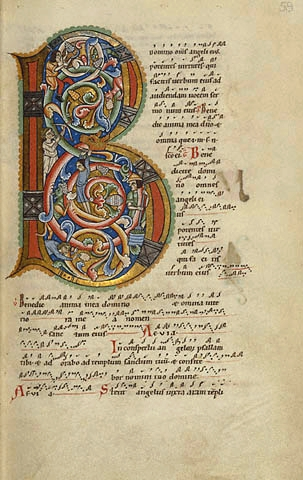 59
B
domino omnes angeli eius
potentes uirtutes qui
facitis uerbum eius ad
audiendam uocem ser
mo num eius Bene
dic anima mea dño &
omnia que in me s
Bene
dicite domi
no omnes
angeli ei
us
potentes
uirtutes
qui fa ci tis
uerbum eius
Benedic anima mea domino & omnia inte
rio ra me a nomen
sanc tum eius Aeuia
In conspectu angeloꝝ psallam
tibi & adorabo ad templum sanctum tuum & confite
bor nomini tuo domine
Aeuia Stetit angelus iuxta aram templi